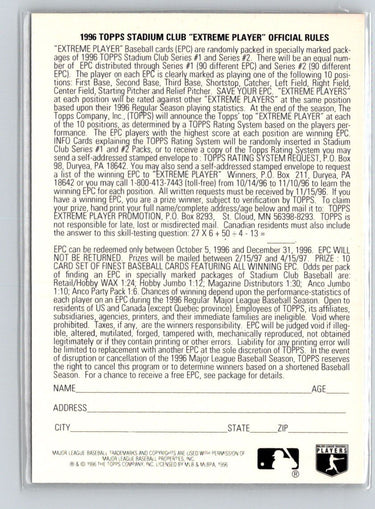 1996 TOPPS STADIUM CLUB "EXTREME PLAYER" OFFICIAL RULES
"EXTREME PLAYER" Baseball cards (EPC) are randomly packed in specially marked pack-
ages of 1996 TOPPS Stadium Club Series #1 and Series #2. There will be an equal num-
ber of EPC distributed through Series #1 (90 different EPC) and Series #2 (90 different
EPC). The player on each EPC is clearly marked as playing one of the following 10 posi-
tions: First Base, Second Base, Third Base, Shortstop, Catcher, Left Field, Right Field,
Center Field, Starting Pitcher and Relief Pitcher. SAVE YOUR EPC. "EXTREME PLAYERS"
at each position will be rated against other "EXTREME PLAYERS" at the same position
based upon their 1996 Regular Season playing statistics. At the end of the season, The
Topps Company, Inc., (TOPPS) will announce the Topps' top "EXTREME PLAYER" at each
of the 10 positions, as determined by a TOPPS Rating System based on the players per-
formance. The EPC players with the highest score at each position are winning EPC.
INFO Cards explaining the TOPPS Rating System will be randomly inserted in Stadium
Club Series #1 and #2 Packs, or to receive a copy of the Topps Rating System you may
send a self-addressed stamped envelope to: TOPPS RATING SYSTEM REQUEST, P.O. Box
98, Duryea, PA 18642. You may also send a self-addressed stamped envelope to request
a list of the winning EPC to "EXTREME PLAYER" Winners, P.O. Box 211, Duryea, PA
18642 or you may call 1-800-413-7443 (toll-free) from 10/14/96 to 11/10/96 to learn the
winning EPC for each position. All written requests must be received by 11/15/96. If you
have a winning EPC, you are a prize winner, subject to verification by TOPPS. To claim
your prize, hand print your full name/complete address/age below and mail it to: TOPPS
EXTREME PLAYER PROMOTION, P.O. Box 8293, St. Cloud, MN 56398-8293. TOPPS is
not responsible for late, lost or misdirected mail. Canadian residents must also include
the answer to this skill-testing question: 27 X 6 + 50 ÷ 4 - 13 =
EPC can be redeemed only between October 5, 1996 and December 31, 1996. EPC WILL
NOT BE RETURNED. Prizes will be mailed between 2/15/97 and 4/15/97. PRIZE: 10
CARD SET OF FINEST BASEBALL CARDS FEATURING ALL WINNING EPC. Odds per pack
of finding an EPC in specially marked packages of Stadium Club Baseball are:
Retail/Hobby WAX 1:24; Hobby Jumbo 1:12; Magazine Distributors 1:30; Anco Jumbo
1:10; Anco Party Pack 1:6. Chances of winning depend upon the performance-statistics of
each player on an EPC during the 1996 Regular Major League Baseball Season. Open to
residents of US and Canada (except Quebec province) Employees of TOPPS, its affiliates,
subsidiaries, agencies, printers, and their immediate families are ineligible. Void where
prohibited. Taxes, if any, are the winners responsibility. EPC will be judged void if illegi-
ble, altered, mutilated, forged, tampered with, mechanically reproduced, not obtained
legitimately or if they contain printing or other errors. Liability for any printing error will
be limited to replacement with another EPC at the sole discretion of TOPPS. In the event
of disruption or cancellation of the 1996 Major League Baseball Season, TOPPS reserves
the right to cancel this program or to determine winners based on a shortened Baseball
Season. For a chance to receive a free EPC, see package for details.
NAME AGE
ADDRESS
CITY STATE ZIP
MAJOR LEAGUE BASEBALL TRADEMARKS AND COPYRIGHTS ARE USED WITH PERMISSION OF
MAJOR LEAGUE BASEBALL PROPERTIES, INC.
® & © 1996 THE TOPPS COMPANY, INC. LICENSED BY MLB & MLBPA, 1996
®
PLAYERS